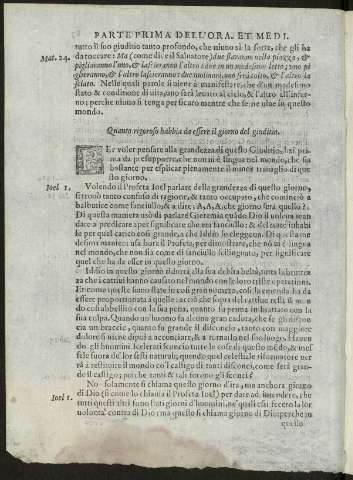 PARTE PRIMA DELL'ORA. ET MEDI.
tutto il suo giuditio tanto profondo, che niuno si la sorte, che gli ha
Mat. 24. da toccare: Ma (come dice il Salvatore) due staranno nella piazza, &
pigliaranno l'uno, & lasciaranno l'altro: due in un medesimo letto, uno pi
glieranno, & l'altro lasciaranno: due molinari, uno sarà tolto, & l'altro la
sciato. Nelle quali parole si viene à manifestare, che d'un medesimo
stato & conditione di vita, uno sarà levato al cielo, & l'altro all'infer-
no: perche niuno si tenga per sicuro mentre che se ne vive in questo
mondo.
Quanto rigoroso habbia da essere il giorno del giuditio.
PEr voler pensare alla grandezza di questo Giuditio, hai pri
ma da presupporre, che non vi è lingua nel mondo, che sia
bastante per esplicar pienamente il manco travaglio di que
sto giorno.
Ioel 1. Volendo il Profeta Ioel parlare della grandezza di questo giorno,
si trovò tanto confuso di ragione, & tanto occupato, che cominciò à
balbutire come fanciullo, & a dire: A, A, A, che giorno serà quello?
Di questa maniera usò di parlare Gieremia quãdo Dio il voleva man
dare a predicare, per significare che era fanciullo: & del tutto inhabi
le per quel carico così grande, à che Iddio lo eleggeva. Di questa me
desima maniera usa hora il Profeta, per dimostrare, che nõ vi è lingua
nel mondo, che non sia come di fanciullo scilinguato, per significare
quel che ha da esser in questo giorno.
Iddio in questo giorno ridurrà alla sua debita beltà, tutta la bruttez
za che i cattivi hanno causato nel mondo con le loro triste operationi.
Et come queste sono state sì così gran numero, così la emenda ha da
essere proportionata à quelle: acciò che sopra del cattivo resti il mon
do così abbellito con la sua pena, quanto fu prima imbrattato con la
sua colpa. Quando un huomo fa alcuna gran caduta, che se gli disconc
cia un braccio, quanto fu grande il disconcio, tanto con maggiore
dolore si viene dipoi à acconciare, & a tornarlo nel suo luogo. Haven
do gli huomini scelerati sconcio tutte le cose di questo mõdo, & mes
sele fuora del lor sesti naturali; quando quel celestiale riformatore ver
rà à restituire il mondo co'l castigo di tanti disconci, come serà gran-
de il castigo; poi che tanti & tali furono gli sconci?
Ioel 1. No solamente si chiama questo giorno d'ira, ma anchora giorno
di Dio (sì come lo chiama il Profeta Ioel) per dare ad intendere, che
tutti questi altri sono stati giorni d'huomini, ne' quali essi fecero la lor
volontà contra di Dio: ma questo si chiama giorno di Dio: perche in
quello